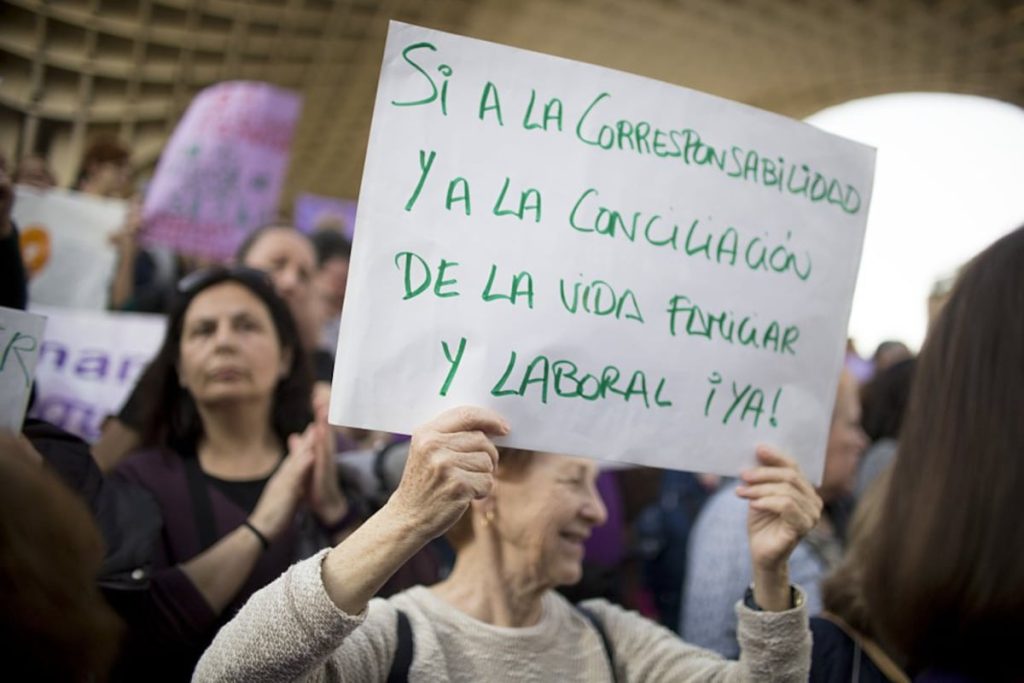 Si A LA CORRESPONSABILIDAD
Y A LA CONCILIACIÓN
DE LA VIDA FAMILIAR
Y LABORAL ¡YA!